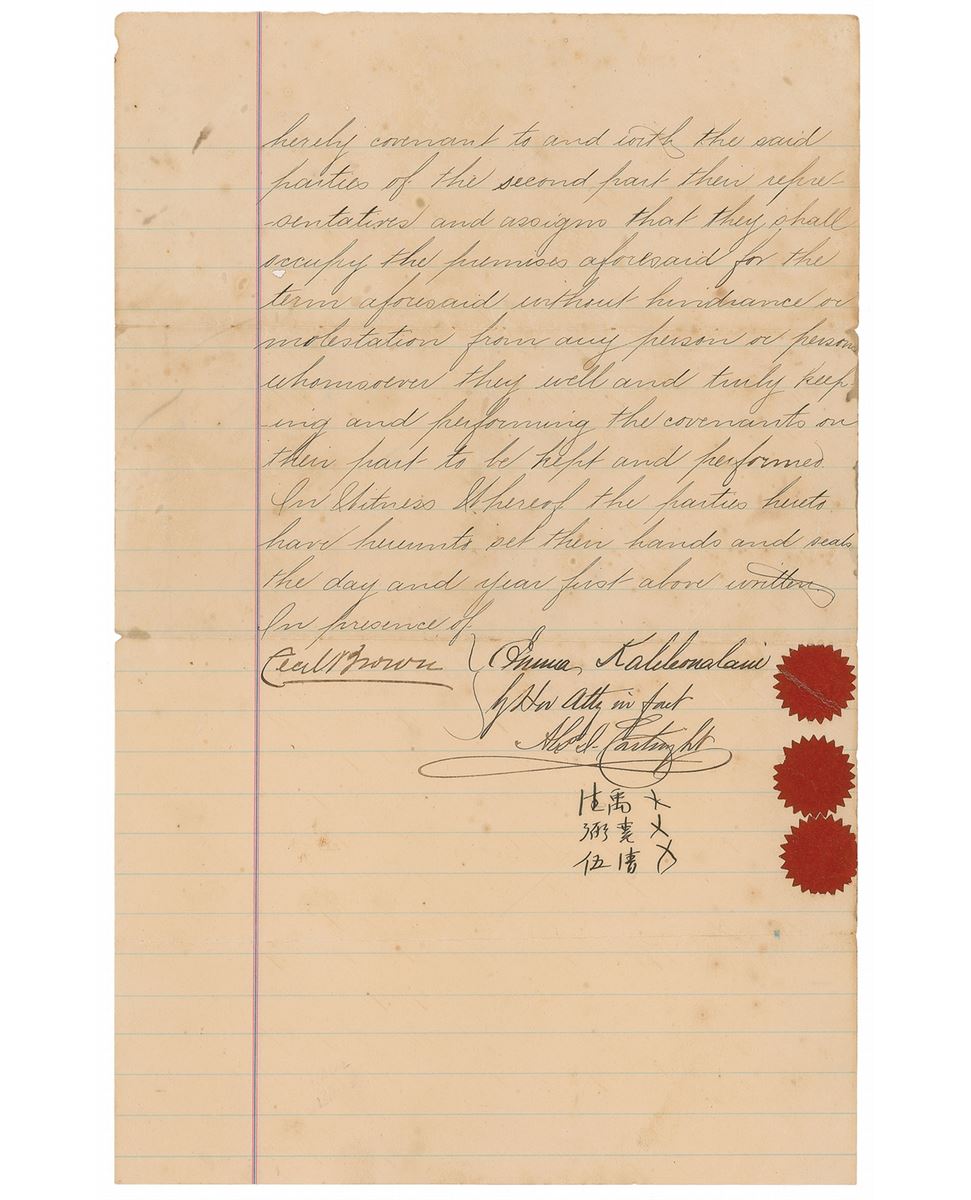 hereby covenant to and with the said
parties of the second part their repre-
-sentatives and assigns that they shall
occupy the premises aforesaid for the
term aforesaid without hindrance or
molestation from any person or persons
whomsoever they well and truly keep
-ing and performing the covenants on
their part to be kept and performed
In Witness Whereof the parties hereto
have hereunto set their hands and seals
the day and year first above written.
In presence of
Cecil Brown
Emma Kaleleonalani
by Her Atty in fact
Alex J. Cartwright
禹
伍